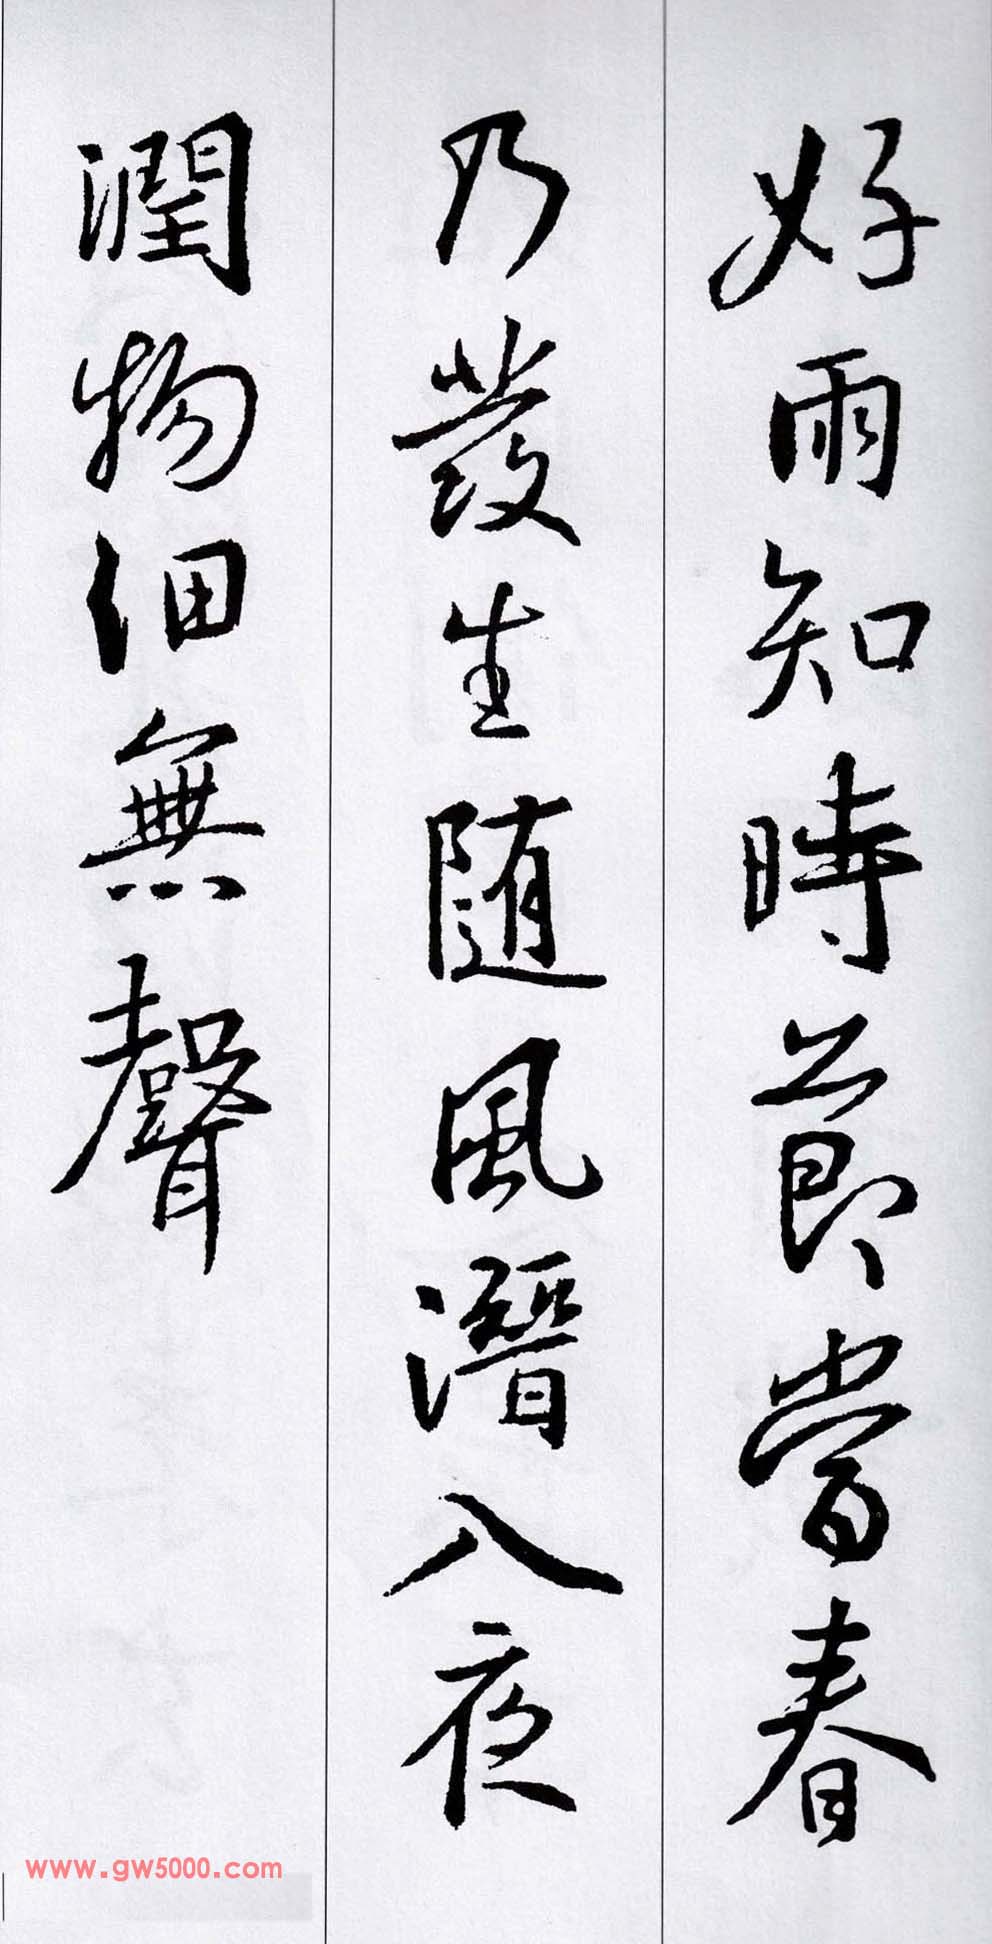 好雨知時節當春
乃發生随風潛入夜
潤物細無聲
www.gw5000.com